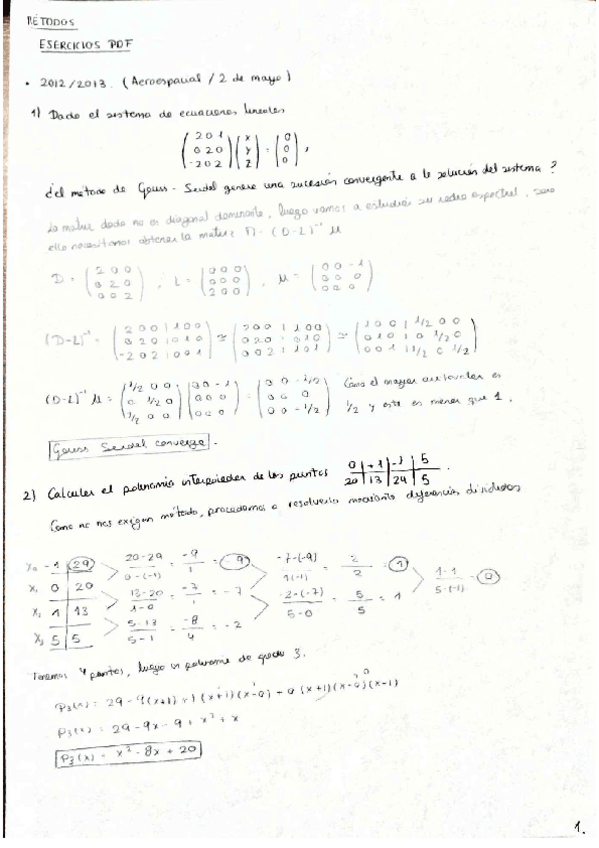 MÉTODOS
EJERCICIOS PDF
• 2012/2013. (Aeroespacial / 2 de mayo)
1) Dado el sistema de ecuaciones lineales
( 2 0 1 / 0 2 0 / -2 0 2 ) ( x / y / z ) = ( 0 / 0 / 0 ),
¿el método de Gauss-Seidel genera una sucesión convergente a la solución del sistema?
La matriz dada no es diagonal dominante, luego vamos a estudiar su radio espectral, para
ello necesitamos obtener la matriz (D-L)⁻¹ µ
D = ( 2 0 0 / 0 2 0 / 0 0 2 ), L = ( 0 0 0 / 0 0 0 / 2 0 0 ), µ = ( 0 0 -1 / 0 0 0 / 0 0 0 )
(D-L)⁻¹ = ( 2 0 0 | 1 0 0 / 0 2 0 | 0 1 0 / -2 0 2 | 0 0 1 ) ≃ ( 2 0 0 | 1 0 0 / 0 2 0 | 0 1 0 / 0 0 2 | 1 0 1 ) ≃ ( 1 0 0 | 1/2 0 0 / 0 1 0 | 0 1/2 0 / 0 0 1 | 1/2 0 1/2 )
(D-L)⁻¹ µ = ( 1/2 0 0 / 0 1/2 0 / 1/2 0 0 ) ( 0 0 -1 / 0 0 0 / 0 0 0 ) = ( 0 0 -1/2 / 0 0 0 / 0 0 -1/2 ) Como el mayor autovalor es
1/2 y este es menor que 1.
Gauss Seidel converge.
2) Calcular el polinomio interpolador de los puntos 0 | 1 | -1 | 5
20 | 13 | 29 | 5
Como no nos exigen método, procedemos a resolverlo mediante diferencias divididas
x₀ -1 | 29 (20-29)/(0-(-1)) = -9/1 = -9 (-7-(-9))/(1-(-1)) = 2/2 = 1 (1-1)/(5-(-1)) = 0
x₁ 0 | 20 (13-20)/(1-0) = -7/1 = -7 (-2-(-7))/(5-0) = 5/5 = 1
x₂ 1 | 13 (5-13)/(5-1) = -8/4 = -2
x₃ 5 | 5
Tenemos 4 puntos, luego un polinomio de grado 3.
P₃(x) = 29-9(x+1)+1(x+1)(x-0)+0(x+1)(x-0)(x-1)
P₃(x) = 29-9x-9+x²+x
P₃(x) = x²-8x+20
1.